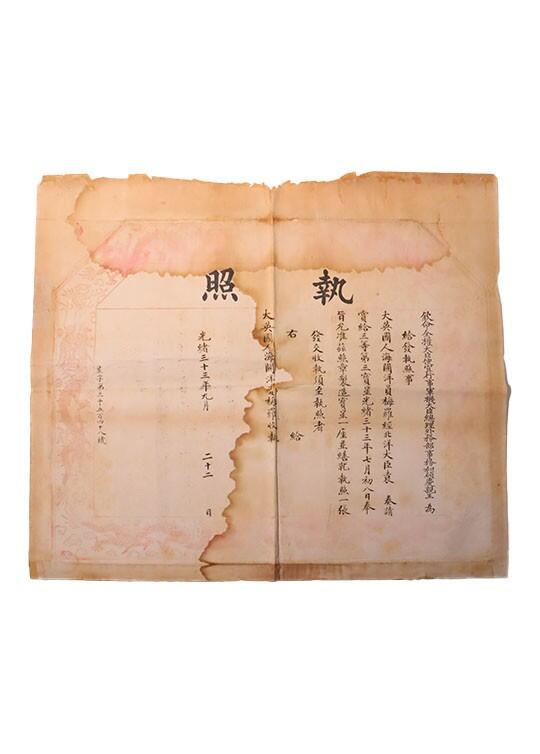 執照
欽命全權大臣便宜行事軍機大臣總理外務部事務和碩慶親王 為
給發執照事
大英國人海關洋員梅羅經北洋大臣袁 奏請
賞給三等第三寶星光緒三十三年七月初八日奉
旨允准茲照章製造寶星一座並繕就執照一張
發交收執須至執照者
右 給
大英國人海關洋員梅羅收執
光緒三十三年九月 二十二 日
字第三千五百四十八號